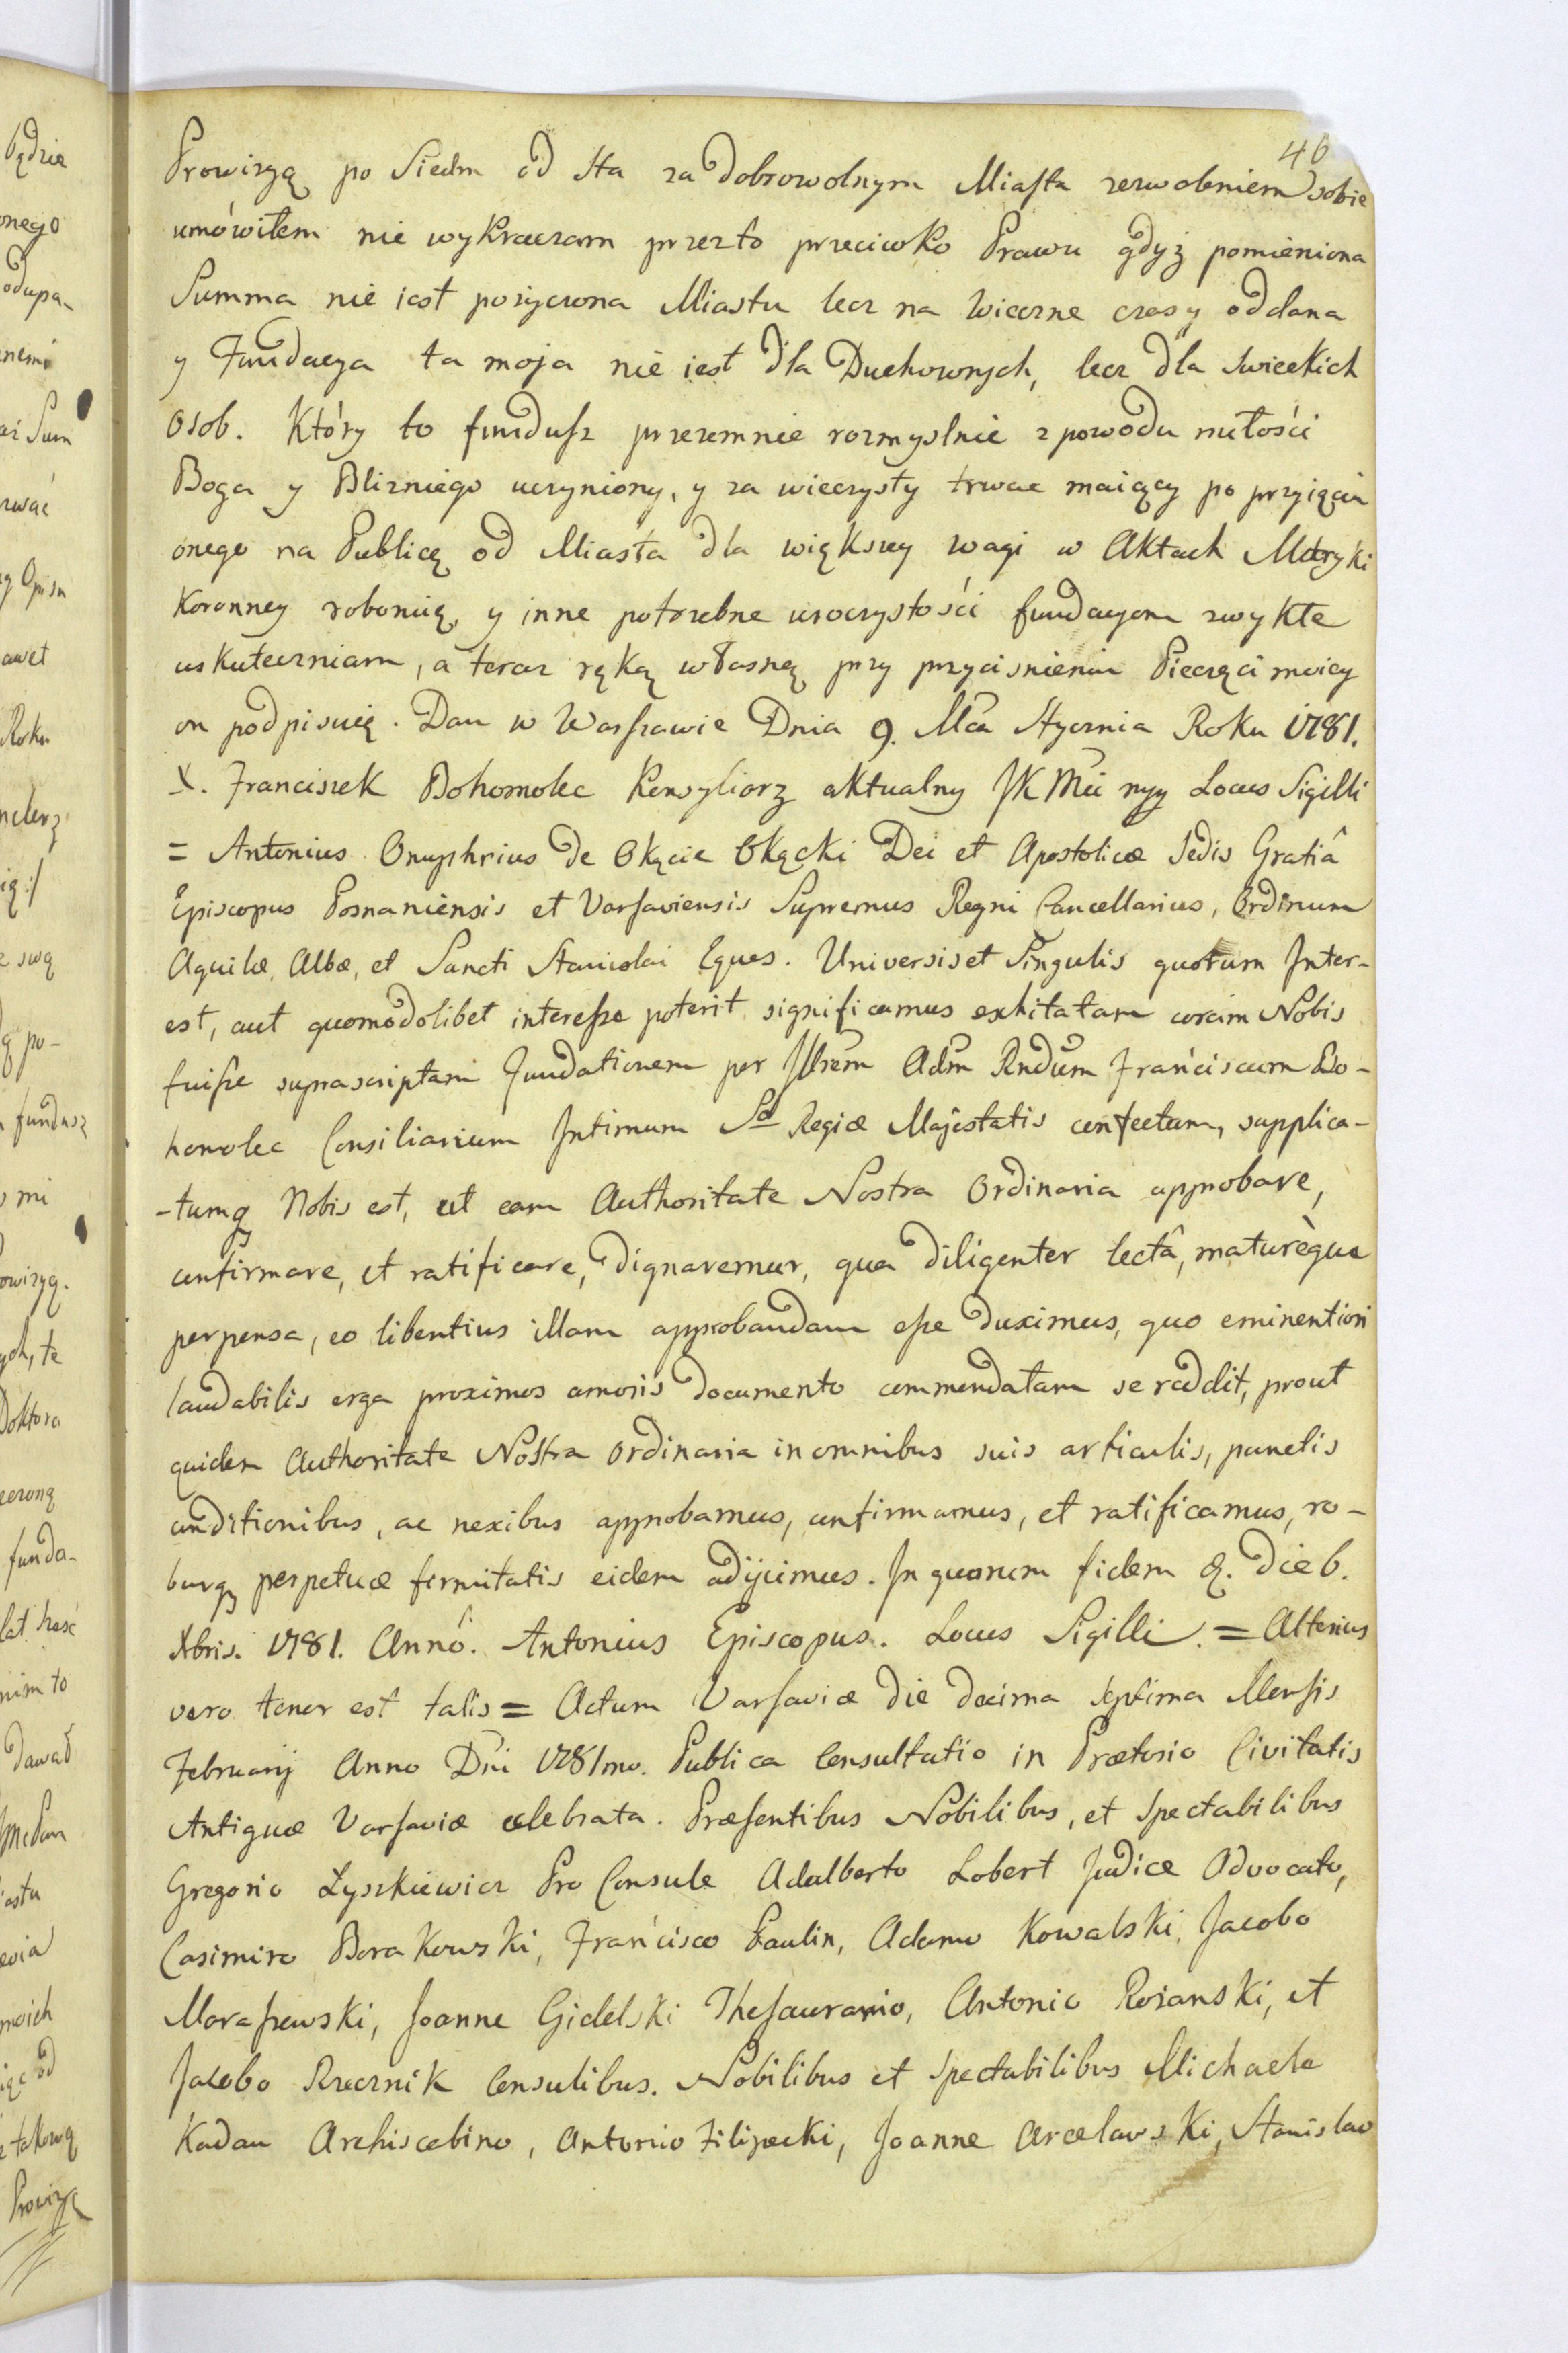 46
Prowizyą po Siedm od Sta za dobrowolnym Miasta zezwoleniem sobie
umówiłem nie wykraczam przezto przeciwko Prawu gdyż pomieniona
Summa nie iest pożyczona Miastu lecz na wieczne czasy oddana
y Fundacya ta moja nie iest dla Duchownych, lecz dla swieckich
osob. Który to fundusz przezemnie rozmyslnie z powodu miłości
Boga y Blizniego uczyniony, y za wieczysty trwac maiący po przyięciu
onego na Publicę od Miasta dla większey wagi w Aktach Metryki
Koronney roboruię, y inne potrzebne uroczystości fundacyom zwykłe
uskuteczniam, a teraz ręką własną przy przycisnieniu Pieczęci moiey
on podpisuię. Dan w Warszawie Dnia 9. Mca Stycznia Roku 1781.
X. Franciszek Bohomolec Konsyliarz aktualny JK Mci mpp Locus Sigilli
= Antonius Onuphrius de Okęcie Okęcki Dei et Apostolicæ Sedis Gratiâ
Episcopus Posnaniensis et Varsaviensis Supremus Regni Cancellarius, Ordinum
Aquilæ Albæ, et Sancti Stanislai Eques. Universis et Singulis quorum Inter-
est, aut quomodolibet interesse poterit significamus exhibitam coram Nobis
fuisse suprascriptam Fundationem per Illrem Adm Rndum Franciscum Bo-
homolec Consiliarium Intimum Sæ Regiæ Majestatis confectam, supplica-
-tumq Nobis est, ut eam Authoritate Nostra Ordinaria approbare,
confirmare, et ratificare, dignaremur, qua diligenter lectâ, maturèque
perpensa, eo libentius illam approbandam esse duximus, quo eminentiori
laudabilis erga proximos amoris documento commendatam se reddit, prout
quidem Authoritate Nostra Ordinaria in omnibus suis articulis, punctis
conditionibus, ac nexibus approbamus, confirmamus, et ratificamus, ro-
burq perpetuæ firmitatis eidem adijcimus. In quorum fidem &. die 6.
Xbris. 1781. Annô. Antonius Episcopus. Locus Sigilli. = Alterius
vero tenor est talis = Actum Varsaviæ die decima septima Mensis
Februarij Anno Dni 1781mo. Publica Consultatio in Prætorio Civitatis
Antiquæ Varsaviæ celebrata. Præsentibus Nobilibus, et Spectabilibus
Gregorio Łyszkiewicz Pro Consule Adalberto Lobert Judice Advocato,
Casimiro Borakowski, Francisco Paulin, Adamo Kowalski, Jacobo
Maraszewski, Joanne Gidelski Thesaurario, Antonio Rożanski, et
Jacobo Rzecznik Consulibus. Nobilibus et Spectabilibus Michaele
Kadau Archiscabino, Antonio Filipecki, Joanne Arcelawski, Stanislao